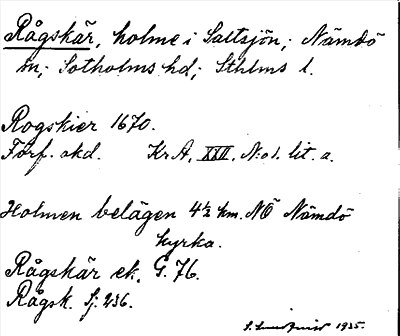 Rågskär, holme i Saltsjön; Nämdö
sn; Sotholms hd; Sthlms l.
Rogskier 1670.
Förf. okd. KrA, XXII, N:o 1. lit. a.
Holmen belägen 4½ km. NÖ Nämdö
kyrka.
Rågskär ek. G. 76.
Rågsk. Sj: 236.
1935.